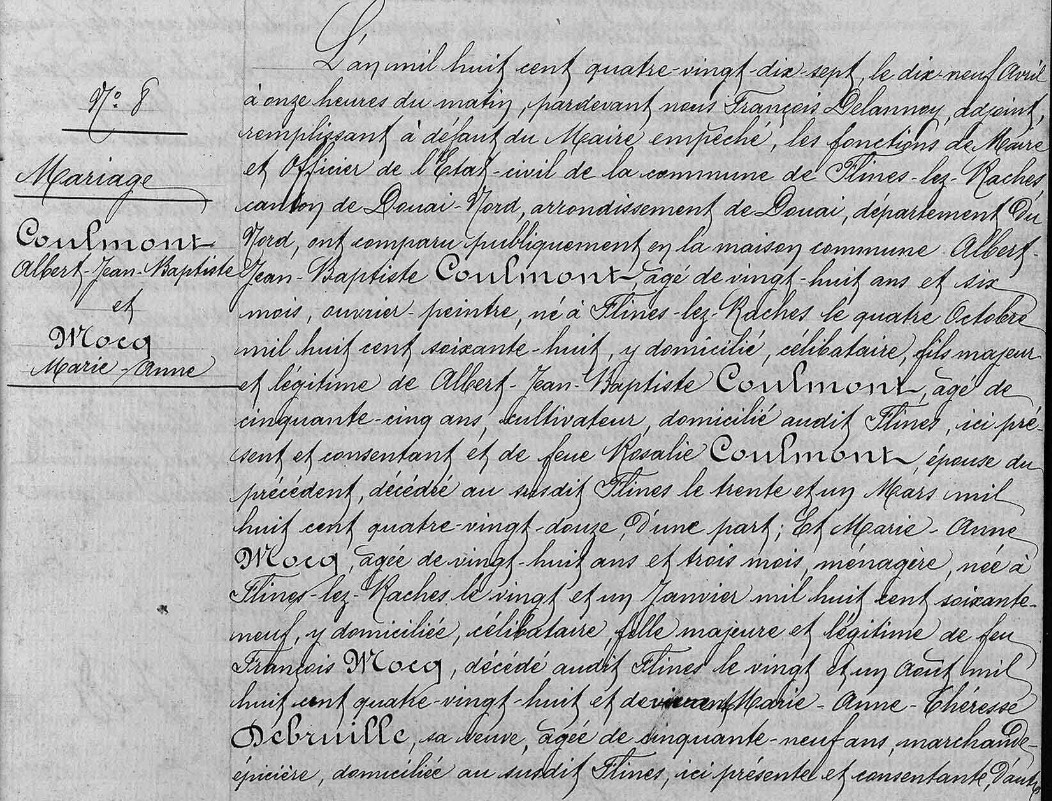 N° 8
Mariage
Coulmont
Albert-Jean-Baptiste
et
Mocq
Marie-Anne
L'an mil huit cent quatre-vingt-dix-sept, le dix neuf Avril
à onze heures du matin, pardevant nous François Delannoy, adjoint,
remplissant à défaut du Maire empêché, les fonctions de Maire
et Officier de l'Etat-civil de la commune de Flines-lez-Raches
canton de Douai-Nord, arrondissement de Douai, département du
Nord, ont comparu publiquement en la maison commune Albert-
Jean-Baptiste Coulmont, âgé de vingt-huit ans et six
mois, ouvrier-peintre, né à Flines-lez-Raches le quatre Octobre
mil huit cent soixante-huit, y domicilié, célibataire, fils majeur
et légitime de Albert-Jean-Baptiste Coulmont, âgé de
cinquante-cinq ans, cultivateur, domicilié audit Flines, ici pré-
sent et consentant et de feue Rosalie Coulmont, épouse du
précédent, décédée au susdit Flines le trente et un Mars mil
huit cent quatre-vingt-douze, d'une part; Et Marie-Anne
Mocq, âgée de vingt-huit ans et trois mois, ménagère, née à
Flines-lez-Raches le vingt et un Janvier mil huit cent soixante-
neuf, y domiciliée, célibataire, fille majeure et légitime de feu
François Mocq, décédé audit Flines le vingt et un Août mil
huit cent quatre-vingt-huit et de Marie-Anne-Théresse
Debruille, sa veuve, âgée de cinquante-neuf ans, marchande-
épicière, domiciliée au susdit Flines, ici présente et consentante, d'autre